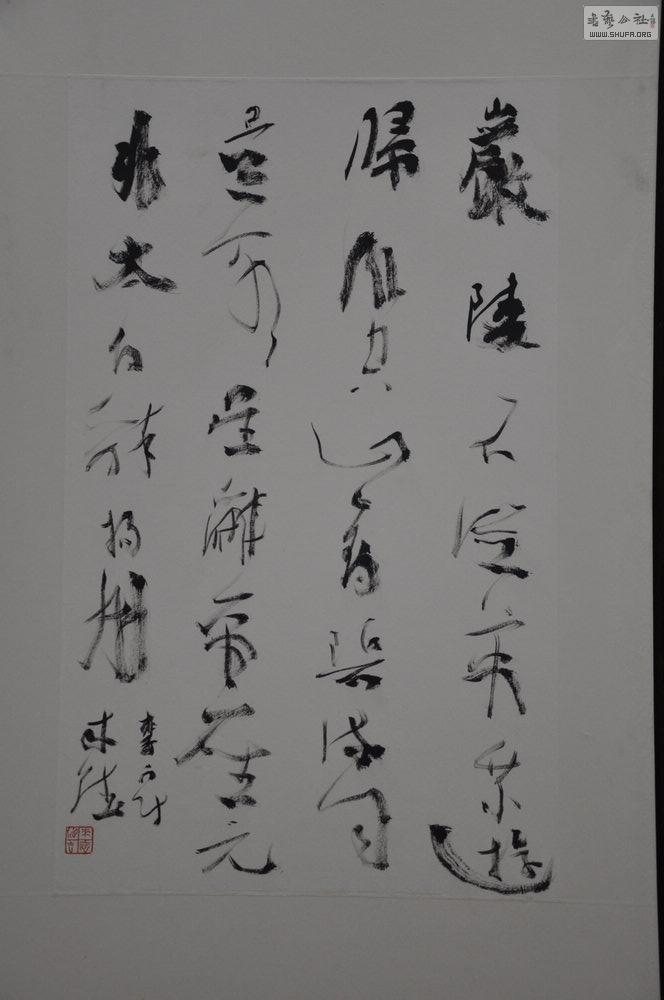 書藝公社
WWW.SHUFA.ORG
嚴陵不從萬乘遊
歸臥空山釣碧流自
是客星辭帝座元
非太白醉揚州
李白詩